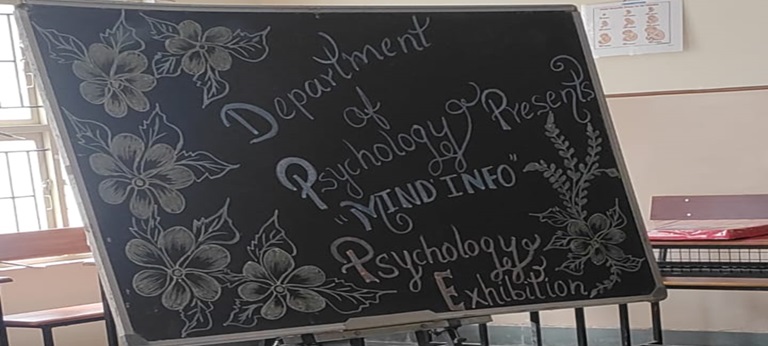 Department
of
Psychology Presents
"MIND INFO"
Psychology
Exhibition